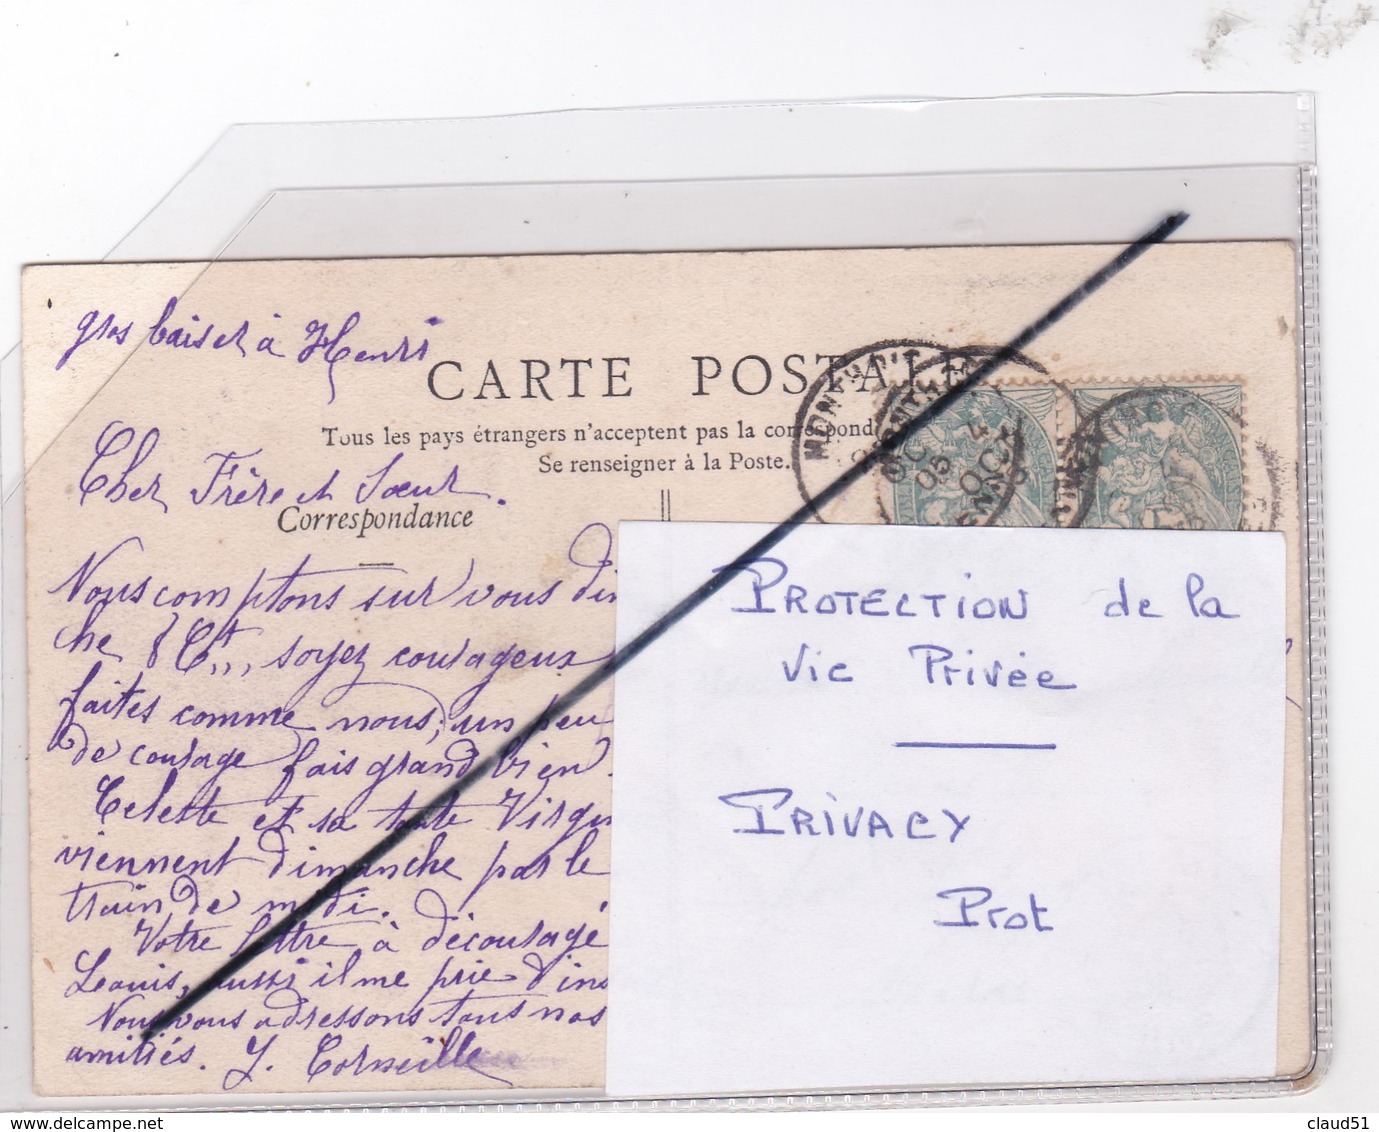 gros baiser à Henri
CARTE POSTALE
Tous les pays étrangers n'acceptent pas la correspond
Se renseigner à la Poste.
Cher Frère et Sœur.
Correspondance
Nous comptons sur vous dim
che 8 Ct, soyez courageux
faites comme nous, un peu
de courage fais grand bien.
Celeste et sa tante Virgin
viennent dimanche par le
train de midi.
Votre lettre à découragé
Louis, aussi il me prie d'ins
Nous vous adressons tous nos
amitiés. J. Corneille
PROTECTION de la
vie Privée
PRIVACY
Prot
delcampe.net
claud51